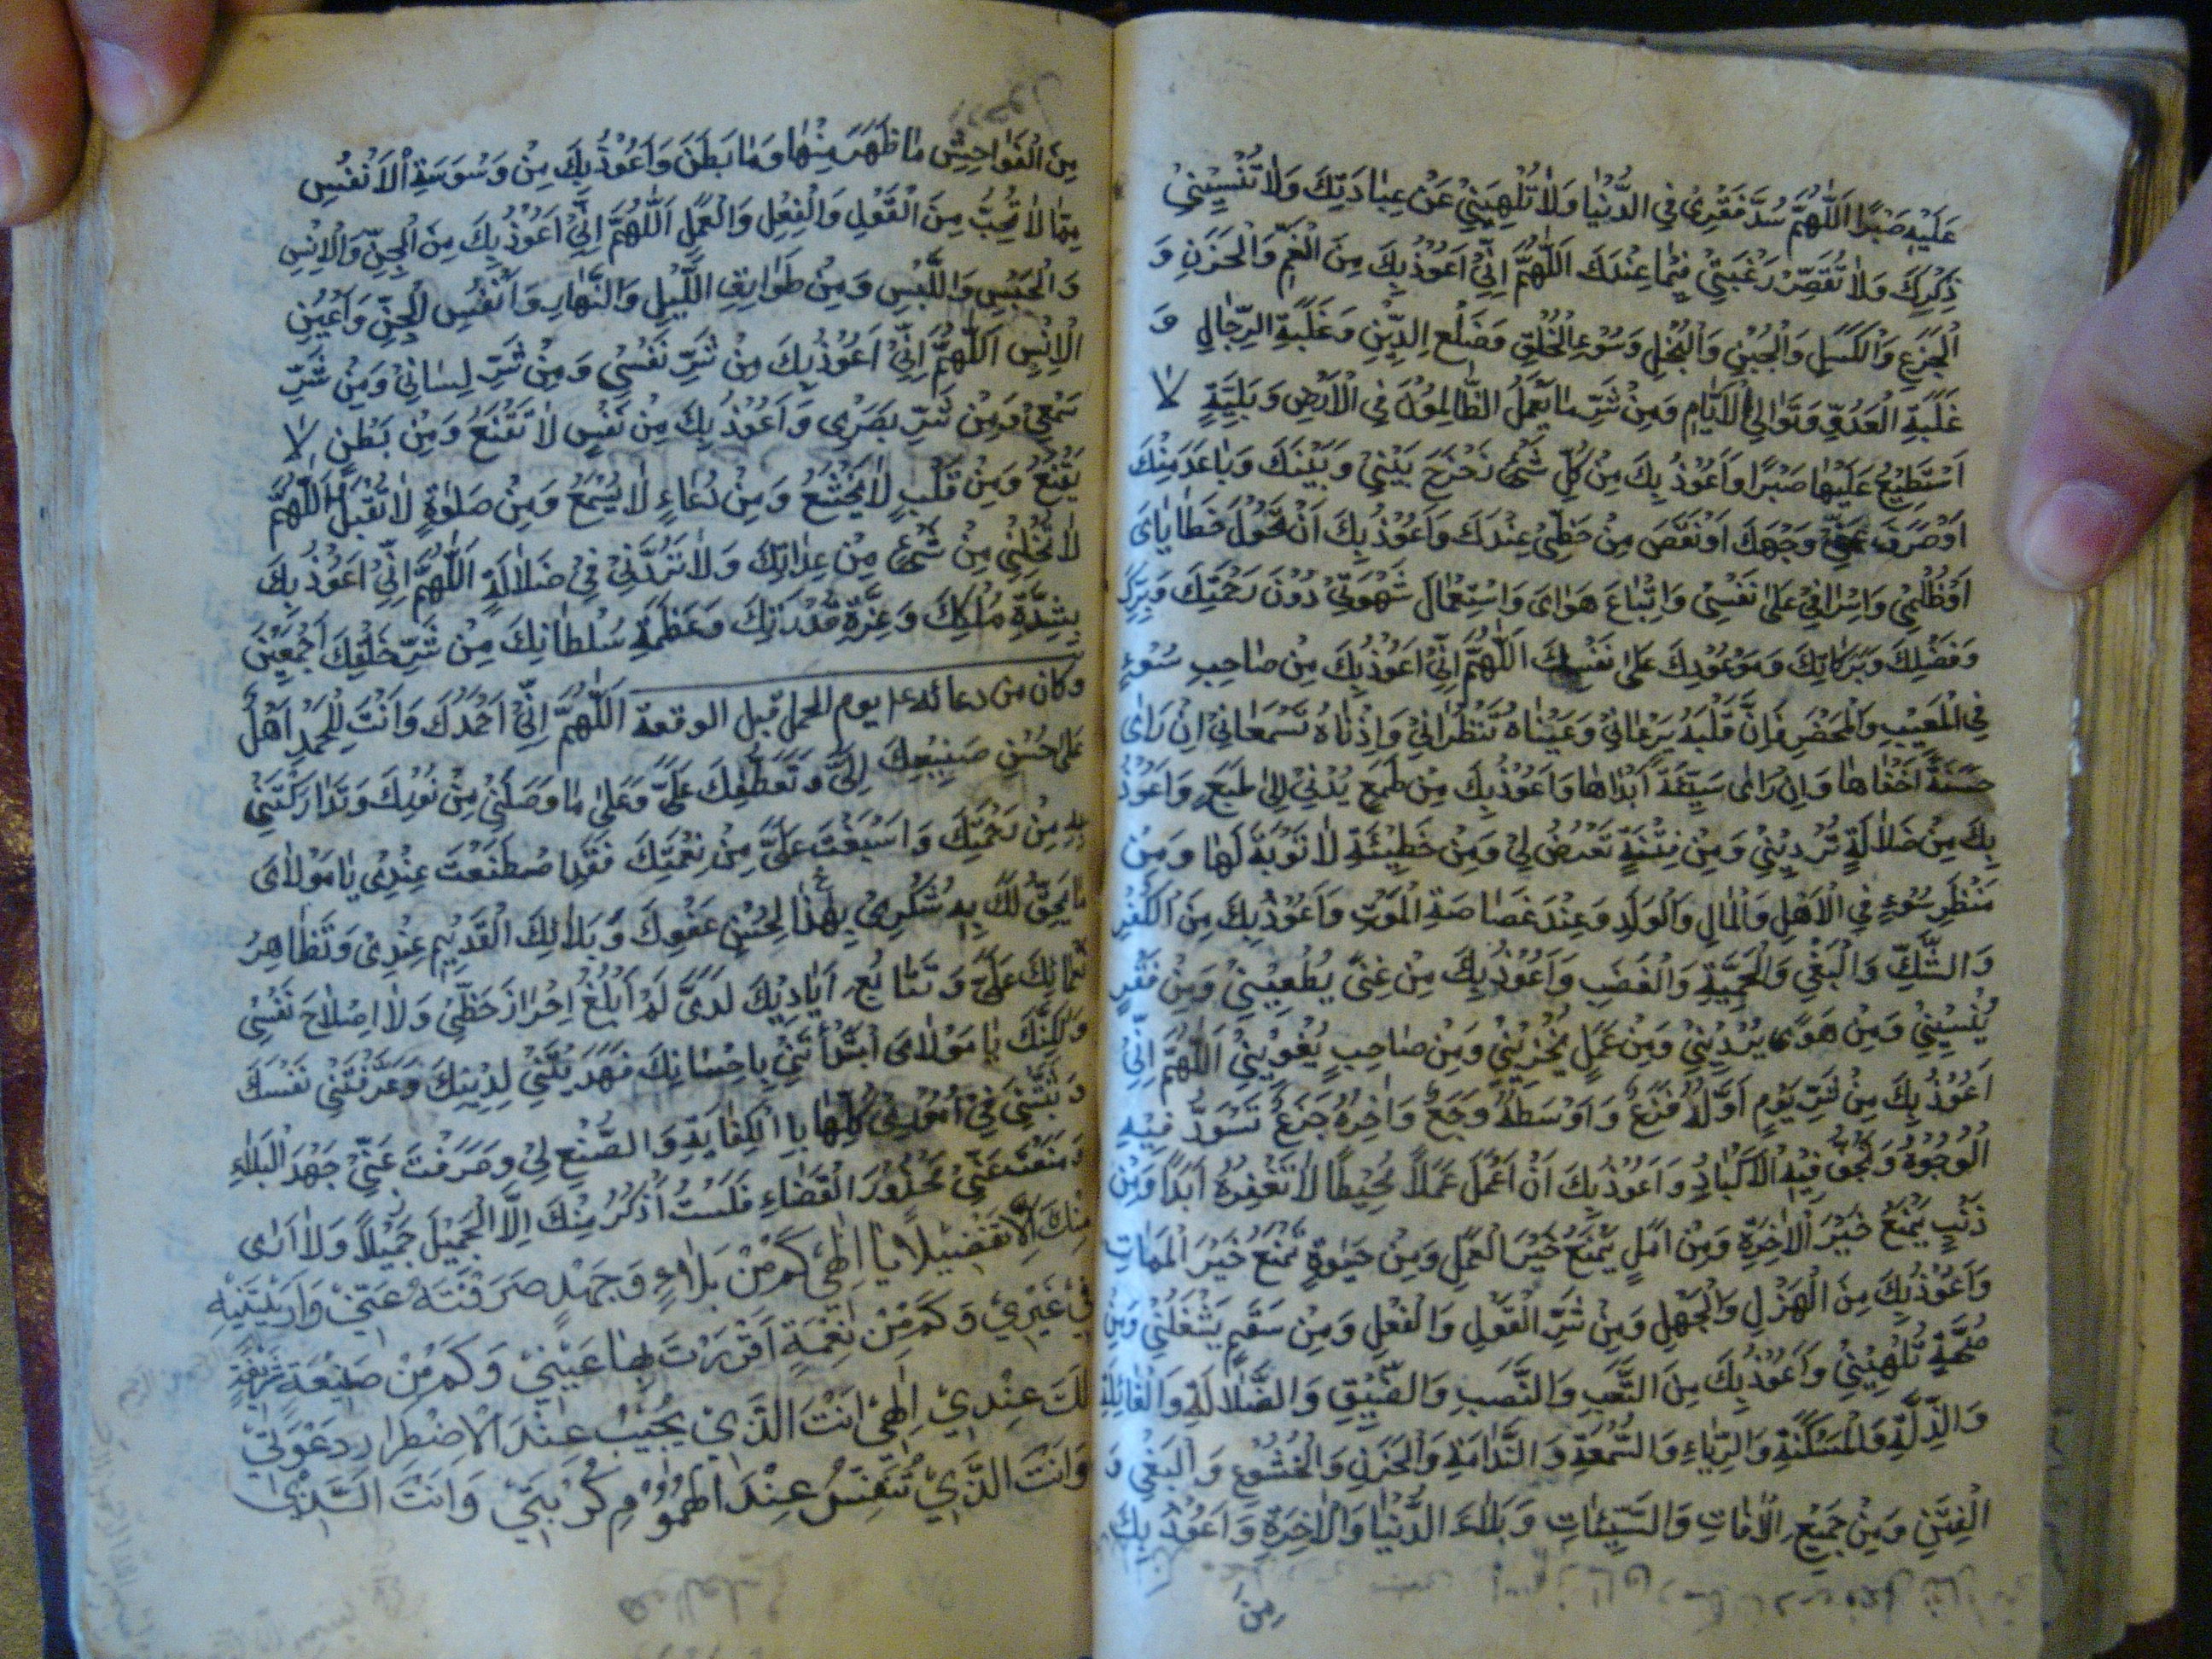 عَلَيْهِ صَبْرًا اَللّٰهُمَّ سُدَّ فَقْرِى فِى الدُّنْيٰا وَلٰا تُلْهِيَنِىْ عَنْ عِبٰادَتِكَ وَلٰا تُنْسِيَنِىْ
ذِكْرَكَ وَلٰا تُقَصِّرْ رَغْبَتِىْ فِيْمٰا عِنْدَكَ اَللّٰهُمَّ اِنِّىْ اَعُوْذُ بِكَ مِنَ الْغَمِّ وَالْحَزَنِ وَ
الْجَزَعِ وَالْكَسَلِ وَالْجُبْنِ وَالْبُخْلِ وَسُوْءِ الْخُلْقِ وَضَلْعِ الدِّيْنِ وَغَلَبَةِ الرِّجٰالِ وَ
غَلَبَةِ الْعَدُوِّ وَتَوٰالِى الْاَيّٰامِ وَمِنْ شَرِّ مٰا يَعْمَلُ الظّٰالِمُوْنَ فِى الْاَرْضِ وَبَلِيَّةٍ لٰا
اَسْتَطِيْعُ عَلَيْهٰا صَبْرًا وَاَعُوْذُ بِكَ مِنْ كُلِّ شَىْءٍ زَحْزَحَ بَيْنِىْ وَبَيْنَكَ وَبٰاعَدَ مِنْكَ
اَوْ صَرَفَ عَنِّىْ وَجْهَكَ اَوْ نَقَصَ مِنْ حَظِّىْ عِنْدَكَ وَاَعُوْذُ بِكَ اَنْ تَحُوْلَ خَطٰايٰاىَ
اَوْ ظُلْمِىْ وَاِسْرٰافِىْ عَلٰى نَفْسِىْ وَاِتْبٰاعَ هَوٰاىَ وَاسْتِعْمٰالَ شَهْوَتِىْ دُوْنَ رَحْمَتِكَ وَبِرِّكَ
وَفَضْلِكَ وَبَرَكٰاتِكَ وَمَوْعُوْدِكَ عَلٰى نَفْسِكَ اَللّٰهُمَّ اِنِّىْ اَعُوْذُ بِكَ مِنْ صٰاحِبِ سُوْءٍ
فِى الْمَغِيْبِ وَالْمَحْضَرِ فَاِنَّ قَلْبَهُ يَرْعٰانِىْ وَعَيْنٰاهُ تَنْظُرٰانِىْ وَاُذْنٰاهُ تَسْمَعٰانِىْ اِنْ رَاٰى
حَسَنَةً اَخْفٰاهٰا وَاِنْ رَاٰى سَيِّئَةً اَبْدٰاهٰا وَاَعُوْذُ بِكَ مِنْ طَمَعٍ يُدْنِىْ اِلٰى طَبَعٍ وَاَعُوْذُ
بِكَ مِنْ ضَلٰالَةٍ تُرْدِيْنِىْ وَمِنْ فِتْنَةٍ تَعْرُضُ لِىْ وَمِنْ خَطِيْئَةٍ لٰا تَوْبَةَ لَهٰا وَمِنْ
مَنْظَرِ سُوْءٍ فِى الْاَهْلِ وَالْمٰالِ وَالْوَلَدِ وَعِنْدَ غَضٰاضَةِ الْمَوْتِ وَاَعُوْذُ بِكَ مِنَ الْكُفْرِ
وَالشَّكِّ وَالْبَغْىِ وَالْحَمِيَّةِ وَالْغَضَبِ وَاَعُوْذُ بِكَ مِنْ غِنًى يُطْغِيْنِىْ وَمِنْ فَقْرٍ
يُنْسِيْنِىْ وَمِنْ هَوًى يُرْدِيْنِىْ وَمِنْ عَمَلٍ يُخْزِيْنِىْ وَمِنْ صٰاحِبٍ يُغْوِيْنِىْ اَللّٰهُمَّ اِنِّىْ
اَعُوْذُ بِكَ مِنْ شَرِّ يَوْمٍ اَوَّلُهُ فَزَعٌ وَاَوْسَطُهُ وَجَعٌ وَاٰخِرُهُ جَزَعٌ تَسْوَدُّ فِيْهِ
الْوُجُوْهُ وَتَجِفُّ فِيْهِ الْاَكْبٰادُ وَاَعُوْذُ بِكَ اَنْ اَعْمَلَ عَمَلًا مُحِيْطًا لٰا تَغْفِرُهُ اَبَدًا وَمِنْ
ذَنْبٍ يَمْنَعُ خَيْرَ الْاٰخِرَةِ وَمِنْ اَمَلٍ يَمْنَعُ خَيْرَ الْعَمَلِ وَمِنْ حَيٰوةٍ تَمْنَعُ خَيْرَ الْمَمٰاتِ
وَاَعُوْذُ بِكَ مِنَ الْهَزْلِ وَالْجَهْلِ وَمِنْ شَرِّ الْقَوْلِ وَالْفَعْلِ وَمِنْ سَقَمٍ يَشْغَلُنِىْ وَمِنْ
صِحَّةٍ تُلْهِيْنِىْ وَاَعُوْذُ بِكَ مِنَ التَّعَبِ وَالنَّصَبِ وَالضِّيْقِ وَالضَّلٰالَةِ وَالْغٰائِلَةِ
وَالذِّلَّةِ وَالْمَسْكَنَةِ وَالرِّيٰاءِ وَالسُّمْعَةِ وَالنَّدٰامَةِ وَالْحَزَنِ وَالْخُشُوْعِ وَالْبَغْىِ وَ
الْفِتَنِ وَمِنْ جَمِيْعِ الْاٰفٰاتِ وَالسَّيِّئٰاتِ وَبَلٰاءِ الدُّنْيٰا وَالْاٰخِرَةِ وَاَعُوْذُ بِكَ
مِنَ
مِنَ الْفَوٰاحِشِ مٰا ظَهَرَ مِنْهٰا وَمٰا بَطَنَ وَاَعُوْذُ بِكَ مِنْ وَسْوَسَةِ الْاَنْفُسِ
مِمّٰا لٰا تُحِبُّ مِنَ الْقَوْلِ وَالْفِعْلِ وَالْعَمَلِ اَللّٰهُمَّ اِنِّىْ اَعُوْذُ بِكَ مِنَ الْجِنِّ وَالْاِنْسِ
وَالْحَبْسِ وَاللَّبْسِ وَمِنْ طَوٰارِقِ اللَّيْلِ وَالنَّهٰارِ وَاَنْفُسِ الْجِنِّ وَاَعْيُنِ
الْاِنْسِ اَللّٰهُمَّ اِنِّىْ اَعُوْذُ بِكَ مِنْ شَرِّ نَفْسِىْ وَمِنْ شَرِّ لِسٰانِىْ وَمِنْ شَرِّ
سَمْعِىْ وَمِنْ شَرِّ بَصَرِى وَاَعُوْذُ بِكَ مِنْ نَفْسٍ لٰا تَقْنَعُ وَمِنْ بَطْنٍ لٰا
يَقْنَعُ وَمِنْ قَلْبٍ لٰا يَخْشَعُ وَمِنْ دُعٰاءٍ لٰا يُسْمَعُ وَمِنْ صَلٰوةٍ لٰا تُقْبَلُ اَللّٰهُمَّ
لٰا تُخْلِنِىْ مِنْ شَىْءٍ مِنْ عِذٰابِكَ وَلٰا تَرُدَّنِىْ فِىْ ضَلٰالَةٍ اَللّٰهُمَّ اِنِّىْ اَعُوْذُ بِكَ
بِشِدَّةِ مُلْكِكَ وَعِزَّةِ قُدْرَتِكَ وَعَظَمَةِ سُلْطٰانِكَ مِنْ شَرِّ خَلْقِكَ اَجْمَعِيْنَ
وكان من دعائه ع يوم الجمل قبل الوقعة اَللّٰهُمَّ اِنِّىْ اَحْمَدُكَ وَاَنْتَ لِلْحَمْدِ اَهْلٌ
عَلٰى حُسْنِ صَنِيْعِكَ اِلَىَّ وَتَعَطُّفِكَ عَلَىَّ وَعَلٰى مٰا وَصَلْتَنِىْ مِنْ نُوْرِكَ وَتَدٰارَكْتَنِىْ
بِهِ مِنْ رَحْمَتِكَ وَاَسْبَغْتَ عَلَىَّ مِنْ نِعْمَتِكَ فَقَدِ اصْطَنَعْتَ عِنْدِىْ يٰا مَوْلٰاىَ
مٰا يَحِقُّ لَكَ بِهِ شُكْرِىْ لِحُسْنِ عَفْوِكَ وَبَلٰائِكَ الْقَدِيْمِ عِنْدِىْ وَتَظٰاهِرُ
نَعْمٰائِكَ عَلَىَّ وَتَتٰابُعِ اَيٰادِيْكَ لَدَىَّ لَمْ اَبْلُغْ اِحْرٰازَ حَظِّىْ وَلٰا اِصْلٰاحَ نَفْسِىْ
وَلٰكِنَّكَ يٰا مَوْلٰاىَ ابْتَدَأْتَنِىْ بِاِحْسٰانِكَ فَهَدَيْتَنِىْ لِدِيْنِكَ وَعَرَّفْتَنِىْ نَفْسَكَ
وَثَبَّتَنِىْ فِىْ اُمُوْرِىْ كُلِّهٰا بِالْكِفٰايَةِ وَالصُّنْعِ لِىْ وَصَرَفْتَ عَنِّىْ جَهْدَ الْبَلٰاءِ
وَمَنَعْتَ عَنِّىْ مَحْذُوْرَ الْقَضٰاءِ فَلَسْتُ اَذْكُرُ مِنْكَ اِلَّا الْجَمِيْلَ جَمِيْلًا وَلٰا اَرٰى
مِنْكَ اِلَّا تَفْضِيْلًا يٰا اِلٰهِىْ كَمْ مِنْ بَلٰاءٍ وَجَهْدٍ صَرَفْتَهُ عَنِّىْ وَاَرَيْتَنِيْهِ
فِىْ غَيْرِىْ وَكَمْ مِنْ نِعْمَةٍ اَقْرَرْتَ بِهٰا عَيْنِىْ وَكَمْ مِنْ صَنِيْعَةٍ شَرِيْفَةٍ
لَكَ عِنْدِىْ اِلٰهِىْ اَنْتَ الَّذِىْ يُجِيْبُ عِنْدَ الْاِضْطِرٰارِ دَعْوَتِىْ
وَاَنْتَ الَّذِىْ تُنَفِّسُ عِنْدَ الْهُمُوْمِ كُرْبَتِىْ وَاَنْتَ الَّذِىْ